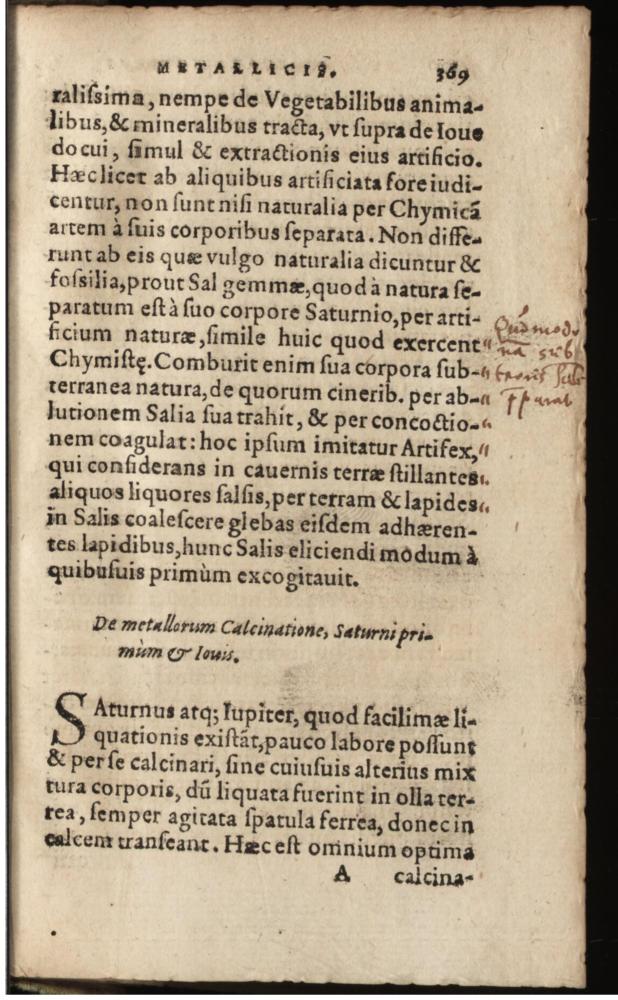 METALLICIS. 369
raliſsima, nempe de Vegetabilibus anima-
libus, & mineralibus tracta, vt ſupra de Ioue
docui, ſimul & extractionis eius artificio.
Hæc licet ab aliquibus artificiata fore iudi-
centur, non ſunt niſi naturalia per Chymicā
artem à ſuis corporibus ſeparata. Non diffe-
runt ab eis quæ vulgo naturalia dicuntur &
foſsilia, prout Sal gemmæ, quod à natura ſe-
paratum eſt à ſuo corpore Saturnio, per arti-
ficium naturæ, ſimile huic quod exercent
Chymiſtę. Comburit enim ſua corpora ſub-
terranea natura, de quorum cinerib. per ab-
lutionem Salia ſua trahit, & per concoctio-
nem coagulat: hoc ipſum imitatur Artifex,
qui conſiderans in cauernis terræ ſtillantes
aliquos liquores ſalſis, per terram & lapides
in Salis coaleſcere glebas eiſdem adhæren-
tes lapidibus, hunc Salis eliciendi modum à
quibuſuis primùm excogitauit.
De metallorum Calcinatione, Saturni pri-
mùm & Iouis.
SAturnus atq; Iupiter, quod facilimæ li-
quationis exiſtāt, pauco labore poſſunt
& per ſe calcinari, ſine cuiuſuis alterius mix
tura corporis, dū liquata fuerint in olla ter-
rea, ſemper agitata ſpatula ferrea, donec in
calcem tranſeant. Hæc eſt omnium optima
A calcina-